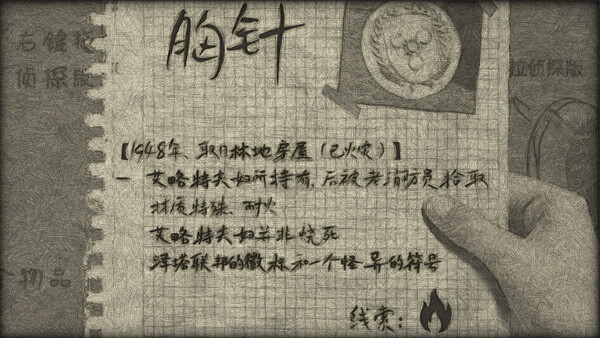 胸针
右键拖
侦探版
拉侦探版
【1948年、取自林地房屋(已火灾)】
一 艾略特夫妇所持有,后被老消防员拾取
材质特殊、耐火
艾略特夫妇并非烧死
泽塔联邦的徽标和一个怪异的符号
个物品
线索: